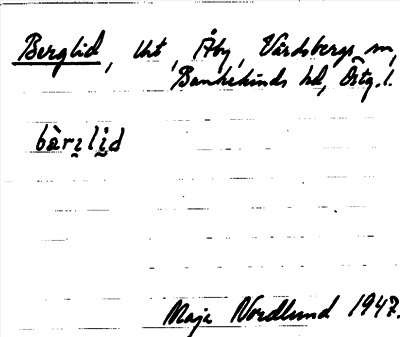 Berglid, Uht, Åby, Vårdsbergs sn,
Bankekinds hd, Östg. l.
bàrı̣lı̣̀d
Maja Nordlund 1947.